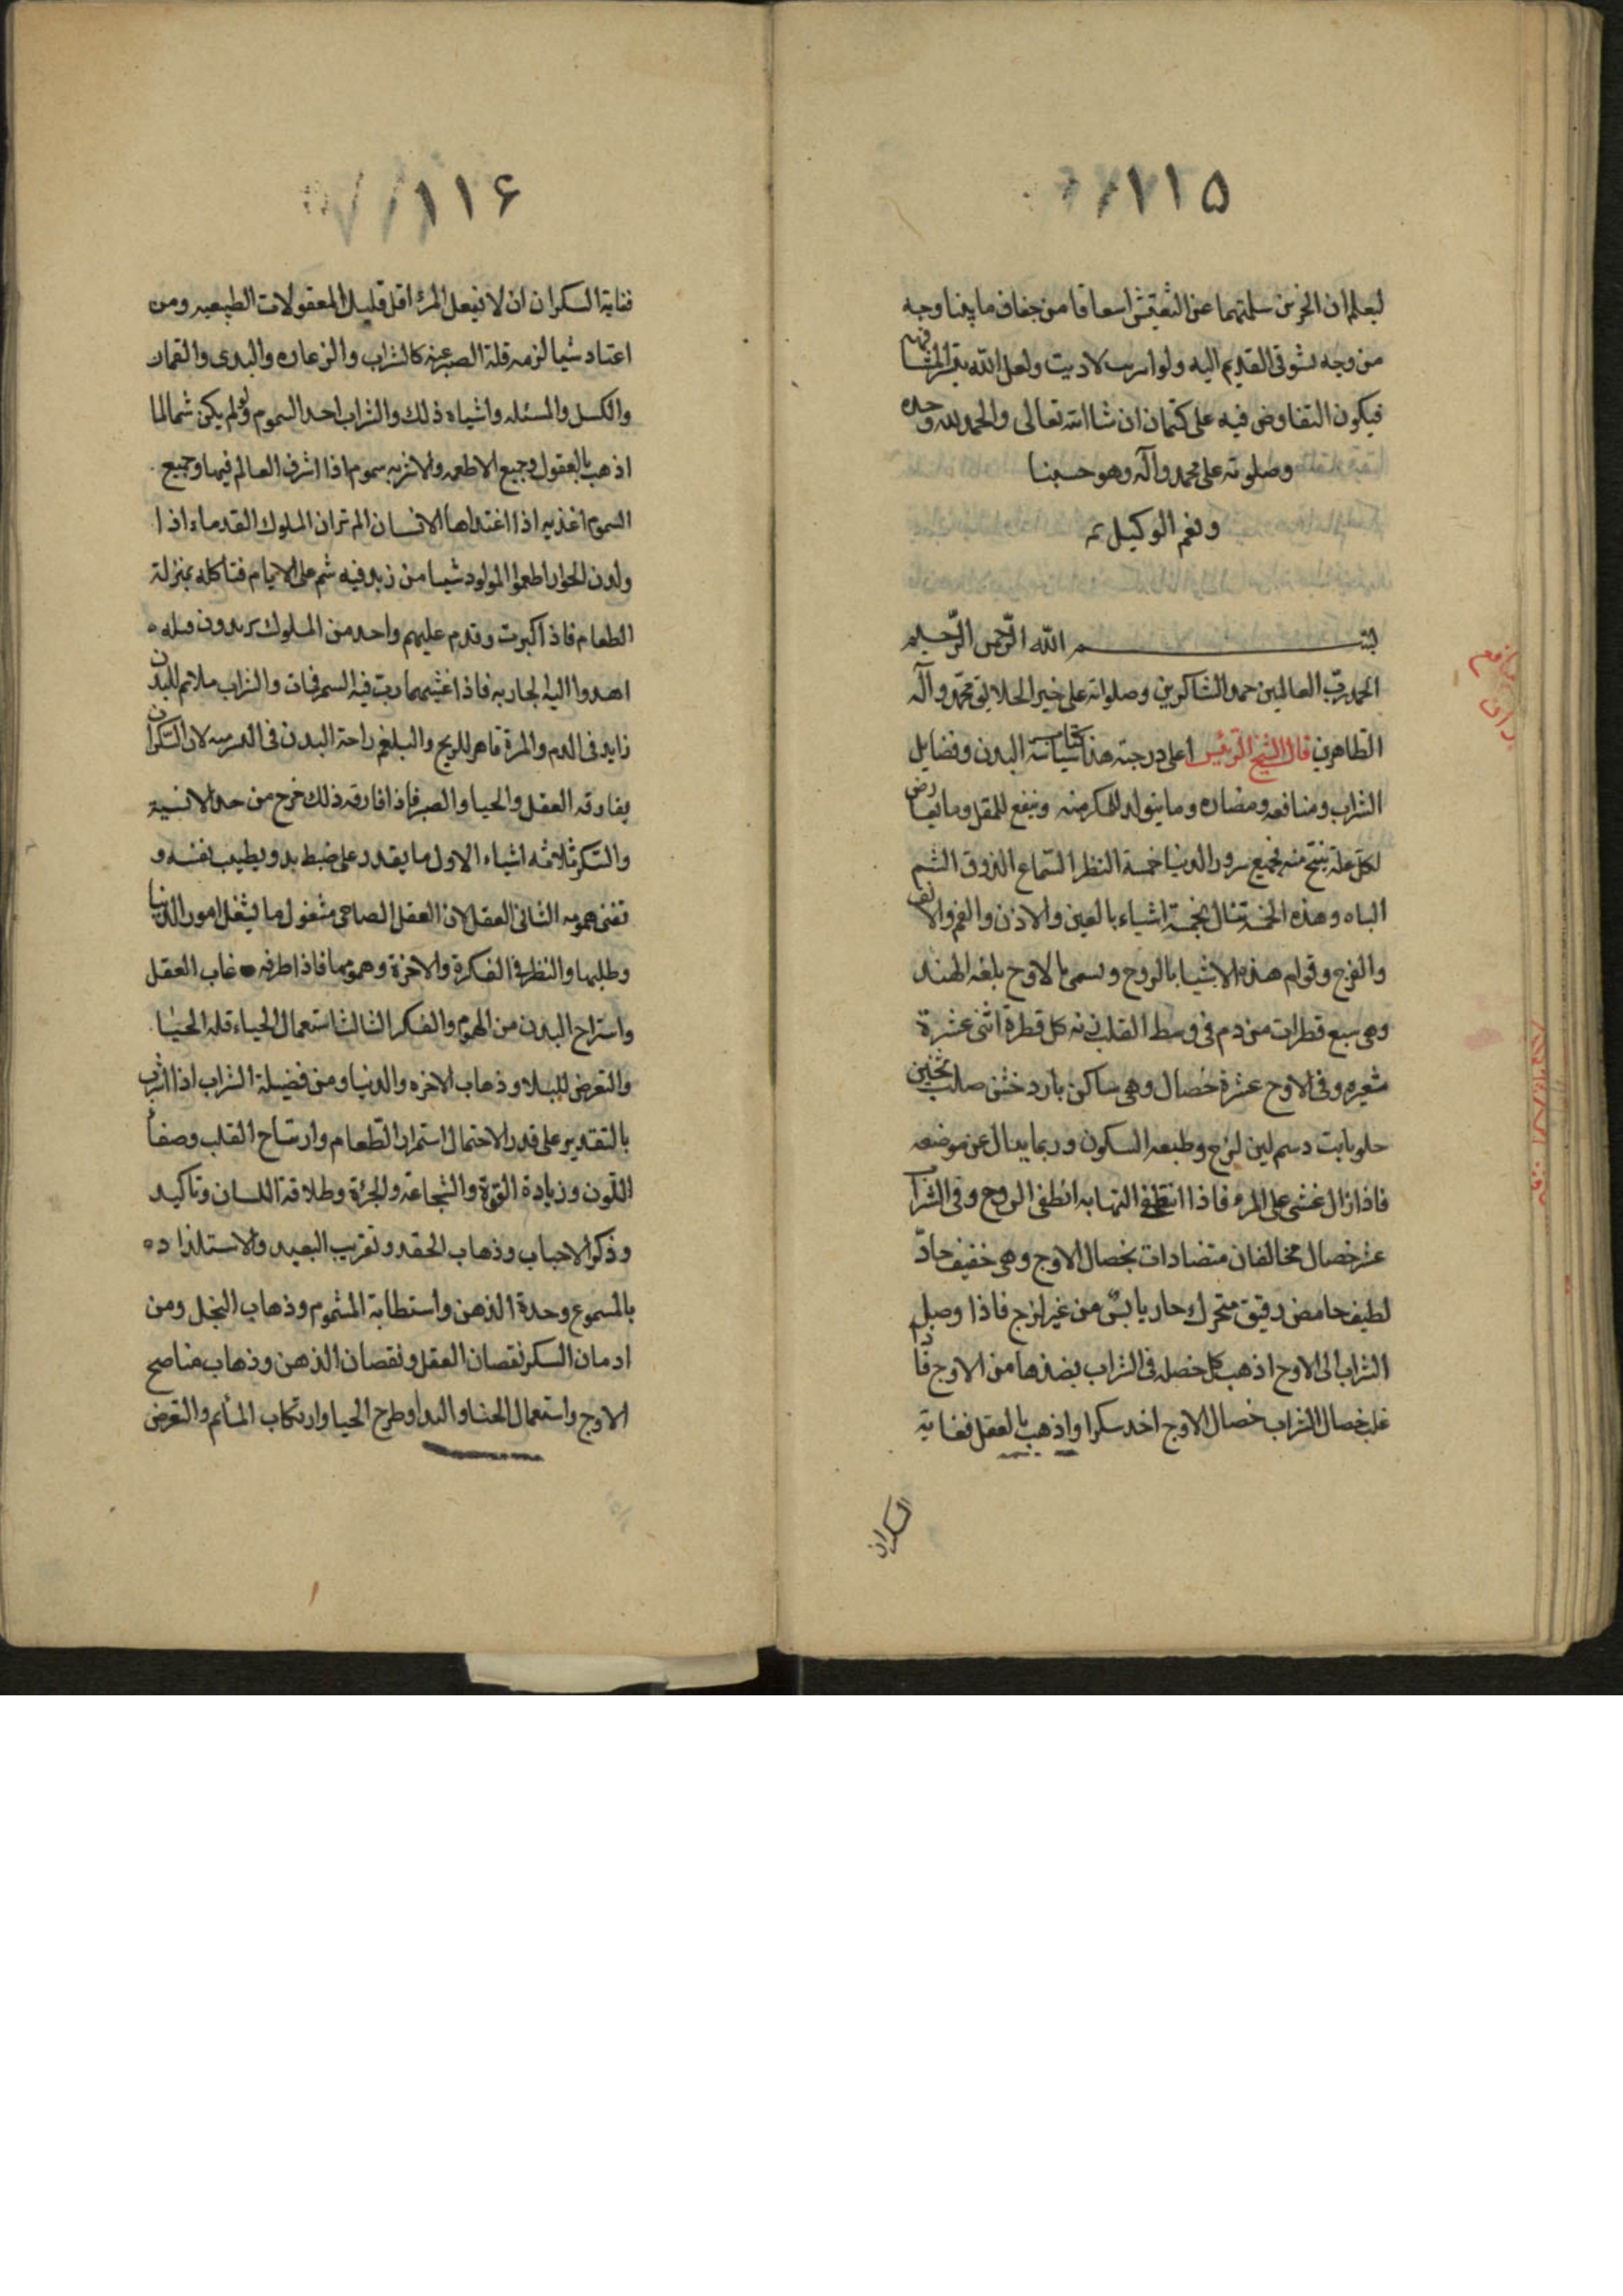 ١١٥
ليعلم ان الجزئين سلمتهما عن التفتيش اسعافا من جفاف ما بيننا وجه
من وجه لشوقى القديم اليه ولو امرت لاديت ولعل الله يقرب المشافهه
فيكون التفاوض فيه على كتمان ان شاالله تعالى والحمد لله وحده
وصلوته على محمد وآله وهو حسبنا
ونعم الوكيل تم
بسم الله الرّحمن الرّحيم
الحمد لله ربّ العالمين حمد الشاكرين وصلواته على خير الخلايق محمّد وآله
الطاهرين قال الشيخ الرّئيس اعلى درجته هذا كتاب سياسة البدن وفضايل
الشراب ومنافعه ومضاره وما يتولد للسكر منه وينفع للمقل وما يعارض
لكل علة ينتج منه جميع سرور الدنيا خمسة النظر السّماع الذوق الشم
الباه وهذه الخمسة تنال بخمسة اشياء بالعين والاذن والفم والانف
والفرج وقوام هذه الاشيا بالروح ويسمى بالاوج بلغه الهند
وهى سبع قطرات من دم فى وسط القلب زنه كل قطرة اثنى عشرة
شعيره وفى الاوج عشرة خصال وهى ساكن بارد خشن صلب ثخين
حلو ثابت دسم لين لزج وطبعه السكون وربما يزال عن موضعه
فاذا زال غشى على المرء فاذا انطفى التهابه انطفى الروح وفى الشراب
عشر خصال مخالفان متضادات بخصال الاوج وهى خفيف حادّ
لطيف حامض رقيق متحرك حار يابس من غير لزج فاذا وصل
الشراب الى الاوج اذهب كل خصله فى الشراب بضدها من الاوج فاذا
غلب خصال الشراب خصال الاوج اخد سكرا واذهب بالعقل فغاية
السكران
١١۶
فغاية السكران ان لا يفعل المرء اقل قليل المعقولات الطبيعيه ومن
اعتاد شيا لزمه قلة الصبر عنه كالشراب والزعاره والبدى والقمار
والكسل والمسئله واشياه ذلك والشراب احد السموم ولو لم يكن شمالما
اذهب بالعقول وجميع الاطعمه والاشربه سموم اذا اسرف العالم فيها وجميع
السموم اغذيه اذا اغتداها الانسان الم تر ان الملوك القدماء اذا
ولدن الجوار اطعموا المولود شيا من زبد فيه سم على الايام فتاكله بمنزلة
الطعام فاذا كبرت وقدم عليهم واحد من الملوك يريدون قتله
اهدوا اليه الجاريه فاذا غشيها دبت فيه السم فمات والشراب ملائم للبدن
زايد فى الدم والمرة قاهر للريح والبلغم راحة البدن فى السكر لان السّكران
يفارقه العقل والحيا والصبر فاذا فارقه ذلك خرج من حد الانسية
والسّكر ثلاثه اشياء الاول ما يقدر على ضبط بدو يطيب نفسه و
تفنى همومه الثانى العقل لان العقل الصاحى مشغول ما يشغل امور الدنيا
وطلبها والنظر فى الفكرة والاخرة وهمومها فاذا طرقه غاب العقل
واستراح البدن من الهموم والفكر الثالث استعمال الحياء قله الحيا
والتعرض للبلا وذهاب الاخره والدنيا ومن فضيلة الشراب اذا شرب
بالتقدير على قدر الاحتمال استمراء الطعام وارتياح القلب وصفاء
اللّون وزيادة القوّة والشجاعة والجرئة وطلاقة اللسان وتاكيد
وذكر الاحباب وذهاب الحقد وتقريب البعيد والاستلذاده
بالمسموع وحدة الذهن واستطابة المشموم وذهاب البخل ومن
ادمان السكر نقصان العقل ونقصان الذهن وذهاب مناصح
الاوج واستعمال الخنا والبدا وطرح الحيا وارتكاب المأثم والتعرض